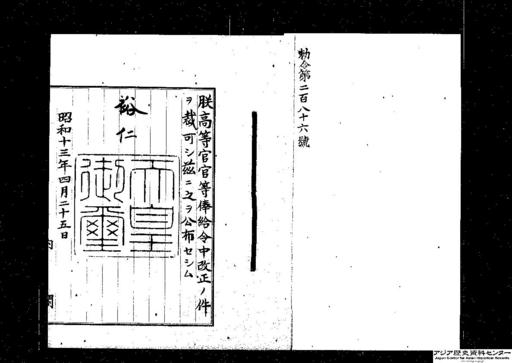 勅令第二百八十六號
朕高等官官等俸給令中改正ノ件
ヲ裁可シ茲ニ之ヲ公布セシム
裕仁
天皇御璽
昭和十三年四月二十五日
内閣
アジア歴史資料センター
Japan Center for Asian Historical Records